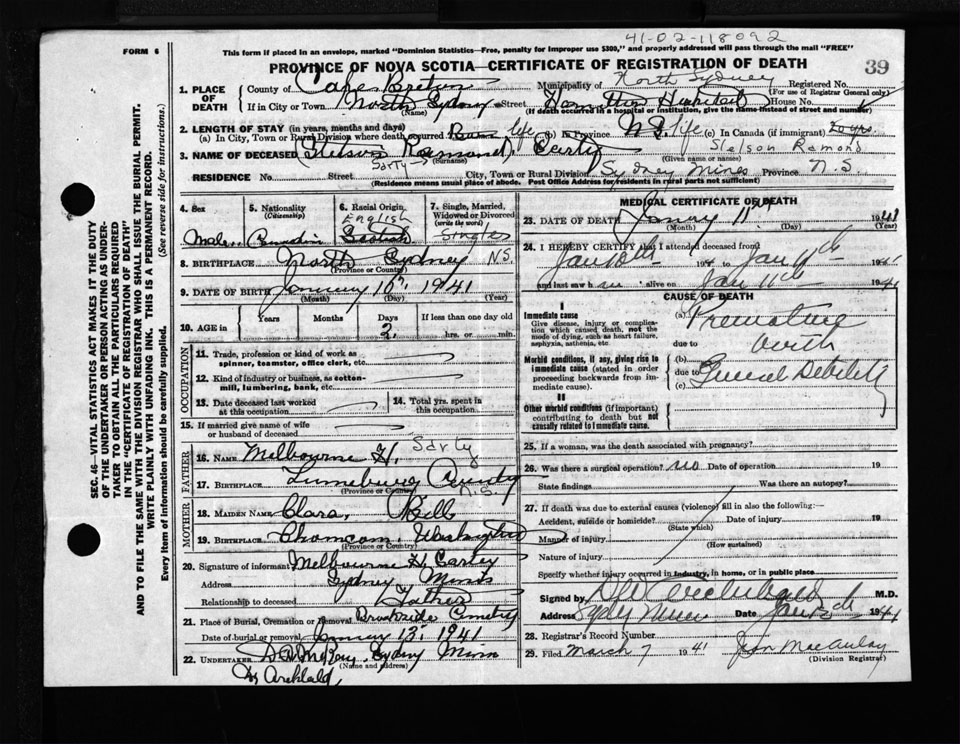 41-02-118092
FORM 6
This form if placed in an envelope, marked "Dominion Statistics—Free, penalty for improper use $300," and properly addressed will pass through the mail "FREE"
PROVINCE OF NOVA SCOTIA—CERTIFICATE OF REGISTRATION OF DEATH
39
1. PLACE OF DEATH
County of Cape Breton Municipality of North Sydney Registered No.
(For use of Registrar General only)
If in City or Town North Sydney Street Hamilton Hospital House No.
(Name) (If death occurred in a hospital or institution, give the name instead of street and number)
2. LENGTH OF STAY (in years, months and days)
(a) In City, Town or Rural Division where death occurred life (b) In Province N.S. life (c) In Canada (if immigrant)
3. NAME OF DECEASED Stetson Raimond Carty Stelson Remond
Sarty (Surname) (Given name or names)
RESIDENCE No. Street City, Town or Rural Division Sydney Mines Province N.S.
(Residence means usual place of abode. Post Office Address for residents in rural parts not sufficient)
4. Sex
Male
5. Nationality
(Citizenship)
Canadin
6. Racial Origin
English
Scotish
7. Single, Married, Widowed or Divorced
(write the word)
Single
8. BIRTHPLACE North Sydney N.S.
(Province or Country)
9. DATE OF BIRTH January 10th 1941
(Month) (Day) (Year)
10. AGE in Years Months Days If less than one day old
2 hrs. or min.
OCCUPATION
11. Trade, profession or kind of work as spinner, teamster, office clerk, etc.
12. Kind of industry or business, as cotton-mill, lumbering, bank, etc.
13. Date deceased last worked at this occupation
14. Total yrs. spent in this occupation
15. If married give name of wife or husband of deceased
FATHER
Sarty
16. NAME Melbourne H.
17. BIRTHPLACE Lunenburg County
(Province or Country) N.S.
MOTHER
18. MAIDEN NAME Clara Bell
19. BIRTHPLACE
(Province or Country)
20. Signature of informant Melbourne H. Cartey
Address Sydney Mines
Relationship to deceased Father
21. Place of Burial, Cremation or Removal Brookside Cemetry
Date of burial or removal January 13 1941
22. UNDERTAKER Sydney Mines
(Name and address)
MEDICAL CERTIFICATE OF DEATH
23. DATE OF DEATH 11th 1941
(Month) (Day) (Year)
24. I HEREBY CERTIFY that I attended deceased from
Jan 10th 194 to Jan 11th 194
and last saw h alive on Jan 11th 1941
CAUSE OF DEATH
I
Immediate cause
Give disease, injury or complication which caused death, not the mode of dying, such as heart failure, asphyxia, asthenia, etc.
(a) Premature
due to birth
Morbid conditions, if any, giving rise to immediate cause (stated in order proceeding backwards from immediate cause).
(b)
due to General Debility
(c)
II
Other morbid conditions (if important) contributing to death but not causally related to immediate cause.
25. If a woman, was the death associated with pregnancy?
26. Was there a surgical operation? no Date of operation 19
State findings Was there an autopsy?
27. If death was due to external causes (violence) fill in also the following:—
Accident, suicide or homicide? Date of injury 19
(State which)
Manner of injury
(How sustained)
Nature of injury
Specify whether injury occurred in industry, in home, or in public place
Signed by M.D.
Address Sydney Mines Date Jan 1941
28. Registrar's Record Number
29. Filed March 7 1941 Jean MacAulay
(Division Registrar)
SEC. 46—VITAL STATISTICS ACT MAKES IT THE DUTY
OF THE UNDERTAKER OR PERSON ACTING AS UNDER-
TAKER TO OBTAIN ALL THE PARTICULARS REQUIRED
IN THE "CERTIFICATE OF REGISTRATION OF DEATH"
AND TO FILE THE SAME WITH THE DIVISION REGISTRAR WHO SHALL ISSUE THE BURIAL PERMIT.
WRITE PLAINLY WITH UNFADING INK. THIS IS A PERMANENT RECORD.
Every item of information should be carefully supplied. (See reverse side for instructions.)